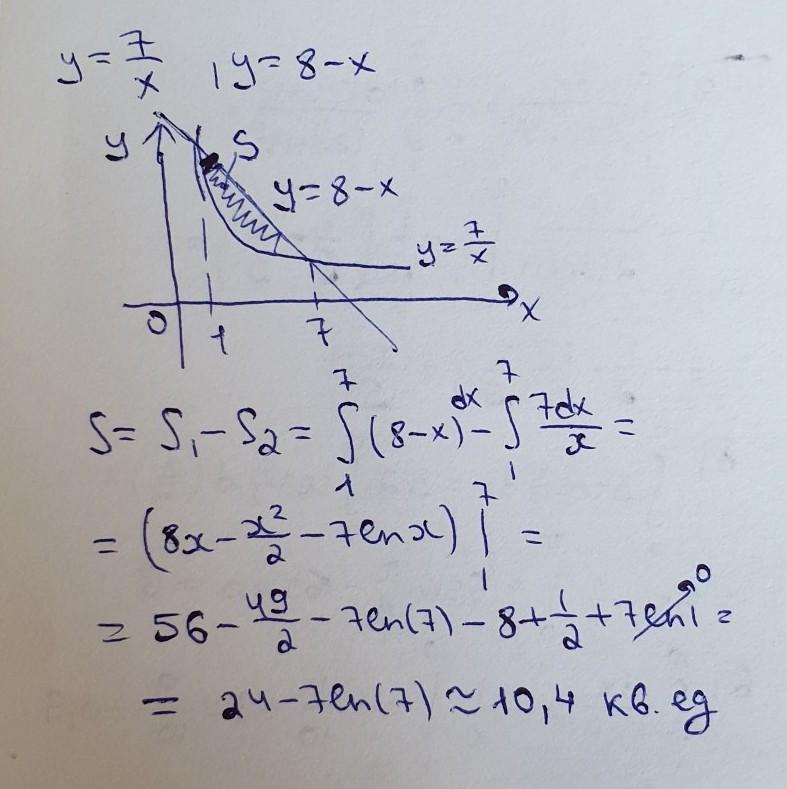 y = 7/x , y = 8-x
y S
y = 8-x
y = 7/x
0 1 7 x
S = S₁ - S₂ = ∫₁⁷ (8-x) dx - ∫₁⁷ 7dx/x =
= (8x - x²/2 - 7ln x) |₁⁷ =
= 56 - 49/2 - 7ln(7) - 8 + 1/2 + 7ln1 → 0 =
= 24 - 7ln(7) ≈ 10,4 кв. ед